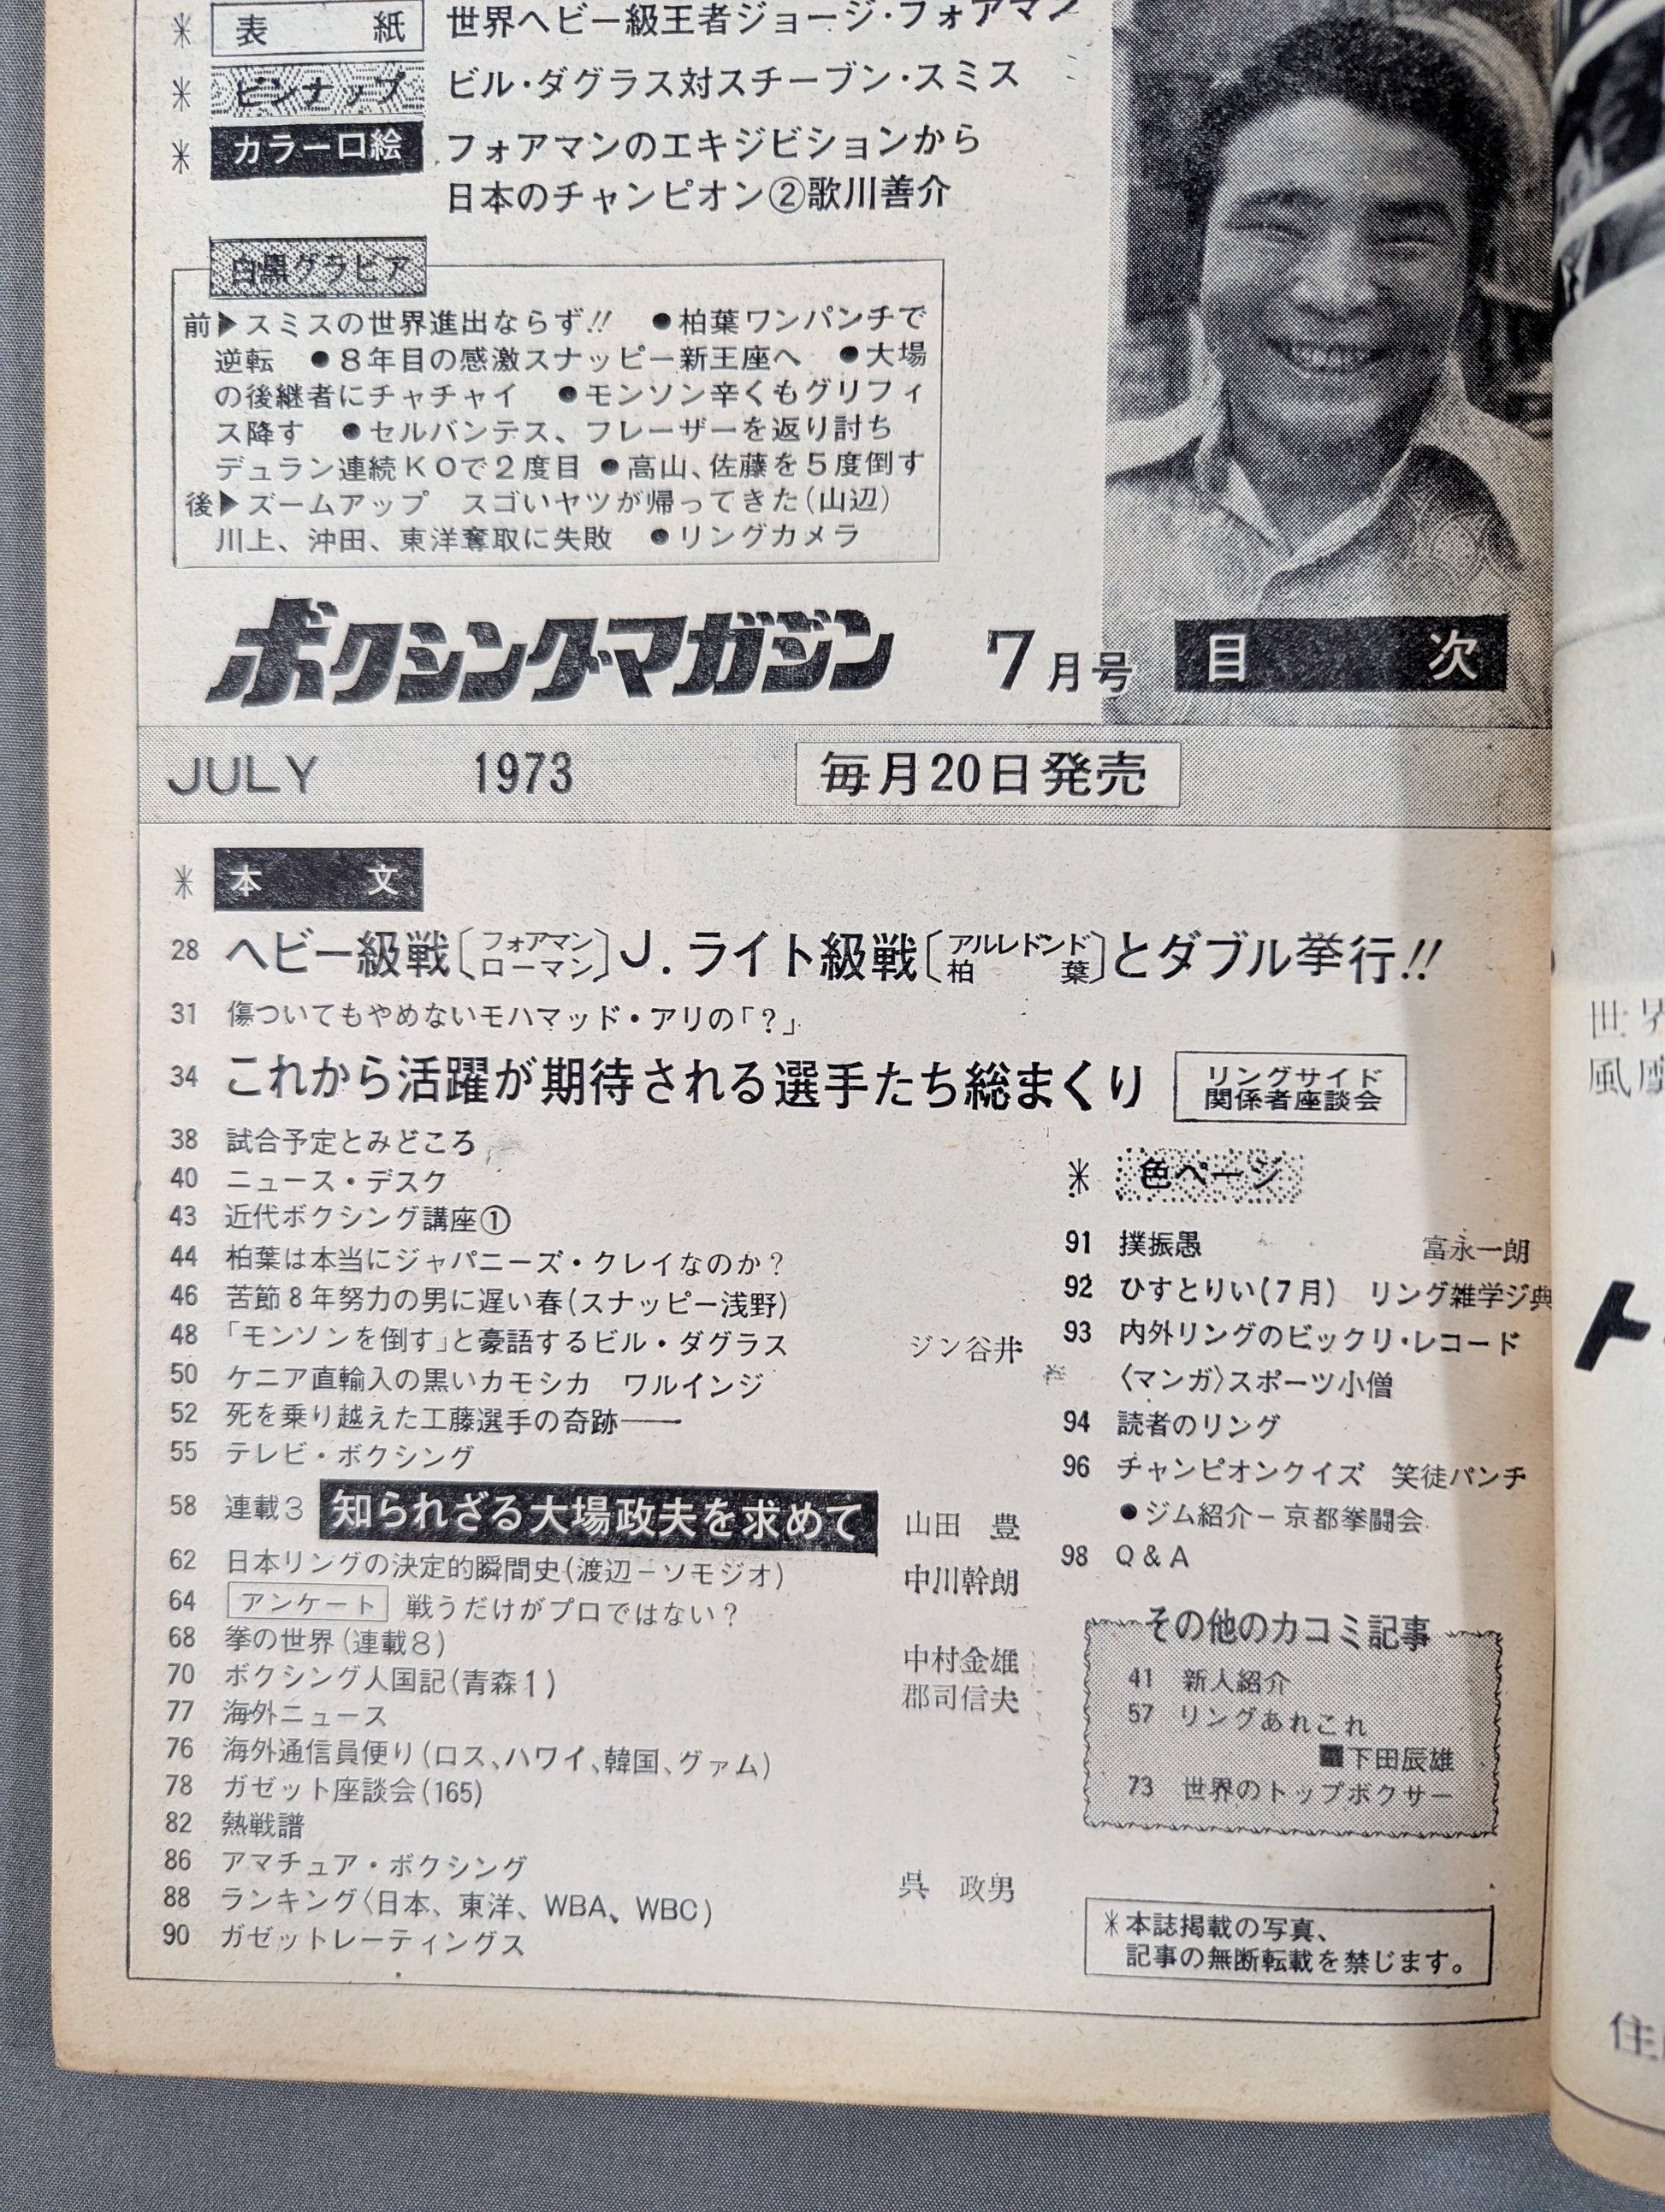 ＊ 表紙 世界ヘビー級王者ジョージ・フォアマン
＊ ピンナップ ビル・ダグラス対スチーブン・スミス
＊ カラー口絵 フォアマンのエキジビションから
日本のチャンピオン②歌川善介
白黒グラビア
前▶スミスの世界進出ならず!! ●柏葉ワンパンチで
逆転 ●8年目の感激スナッピー新王座へ ●大場
の後継者にチャチャイ ●モンソン辛くもグリフィ
ス降す ●セルバンテス、フレーザーを返り討ち
デュラン連続KOで2度目 ●高山、佐藤を5度倒す
後▶ズームアップ スゴいヤツが帰ってきた(山辺)
川上、沖田、東洋奪取に失敗 ●リングカメラ
ボクシング・マガジン 7月号 目次
JULY 1973 毎月20日発売
＊ 本文
28 ヘビー級戦〔フォアマン ローマン〕J．ライト級戦〔アルレドンド 柏葉〕とダブル挙行!!
31 傷ついてもやめないモハマッド・アリの「？」
34 これから活躍が期待される選手たち総まくり リングサイド関係者座談会
38 試合予定とみどころ
40 ニュース・デスク
43 近代ボクシング講座①
44 柏葉は本当にジャパニーズ・クレイなのか？
46 苦節8年努力の男に遅い春(スナッピー浅野)
48 「モンソンを倒す」と豪語するビル・ダグラス ジン谷井
50 ケニア直輸入の黒いカモシカ ワルインジ
52 死を乗り越えた工藤選手の奇跡——
55 テレビ・ボクシング
58 連載3 知られざる大場政夫を求めて 山田 豊
62 日本リングの決定的瞬間史(渡辺－ソモジオ) 中川幹朗
64 アンケート 戦うだけがプロではない？
68 拳の世界(連載8) 中村金雄
70 ボクシング人国記(青森1) 郡司信夫
77 海外ニュース
76 海外通信員便り(ロス、ハワイ、韓国、グァム)
78 ガゼット座談会(165)
82 熱戦譜
86 アマチュア・ボクシング
88 ランキング〈日本、東洋、WBA、WBC) 呉 政男
90 ガゼットレーティングス
＊ 色ページ
91 撲振愚 富永一朗
92 ひすとりい(7月) リング雑学ジ典
93 内外リングのビックリ・レコード
〈マンガ〉スポーツ小僧
94 読者のリング
96 チャンピオンクイズ 笑徒パンチ
●ジム紹介－京都拳闘会
98 Q&A
その他のカコミ記事
41 新人紹介
57 リングあれこれ
■下田辰雄
73 世界のトップボクサー
＊本誌掲載の写真、
記事の無断転載を禁じます。
世界
ト
住